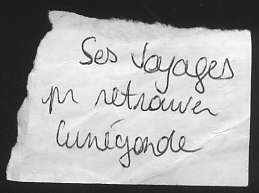 Ses voyages
pr retrouver
Cunégonde